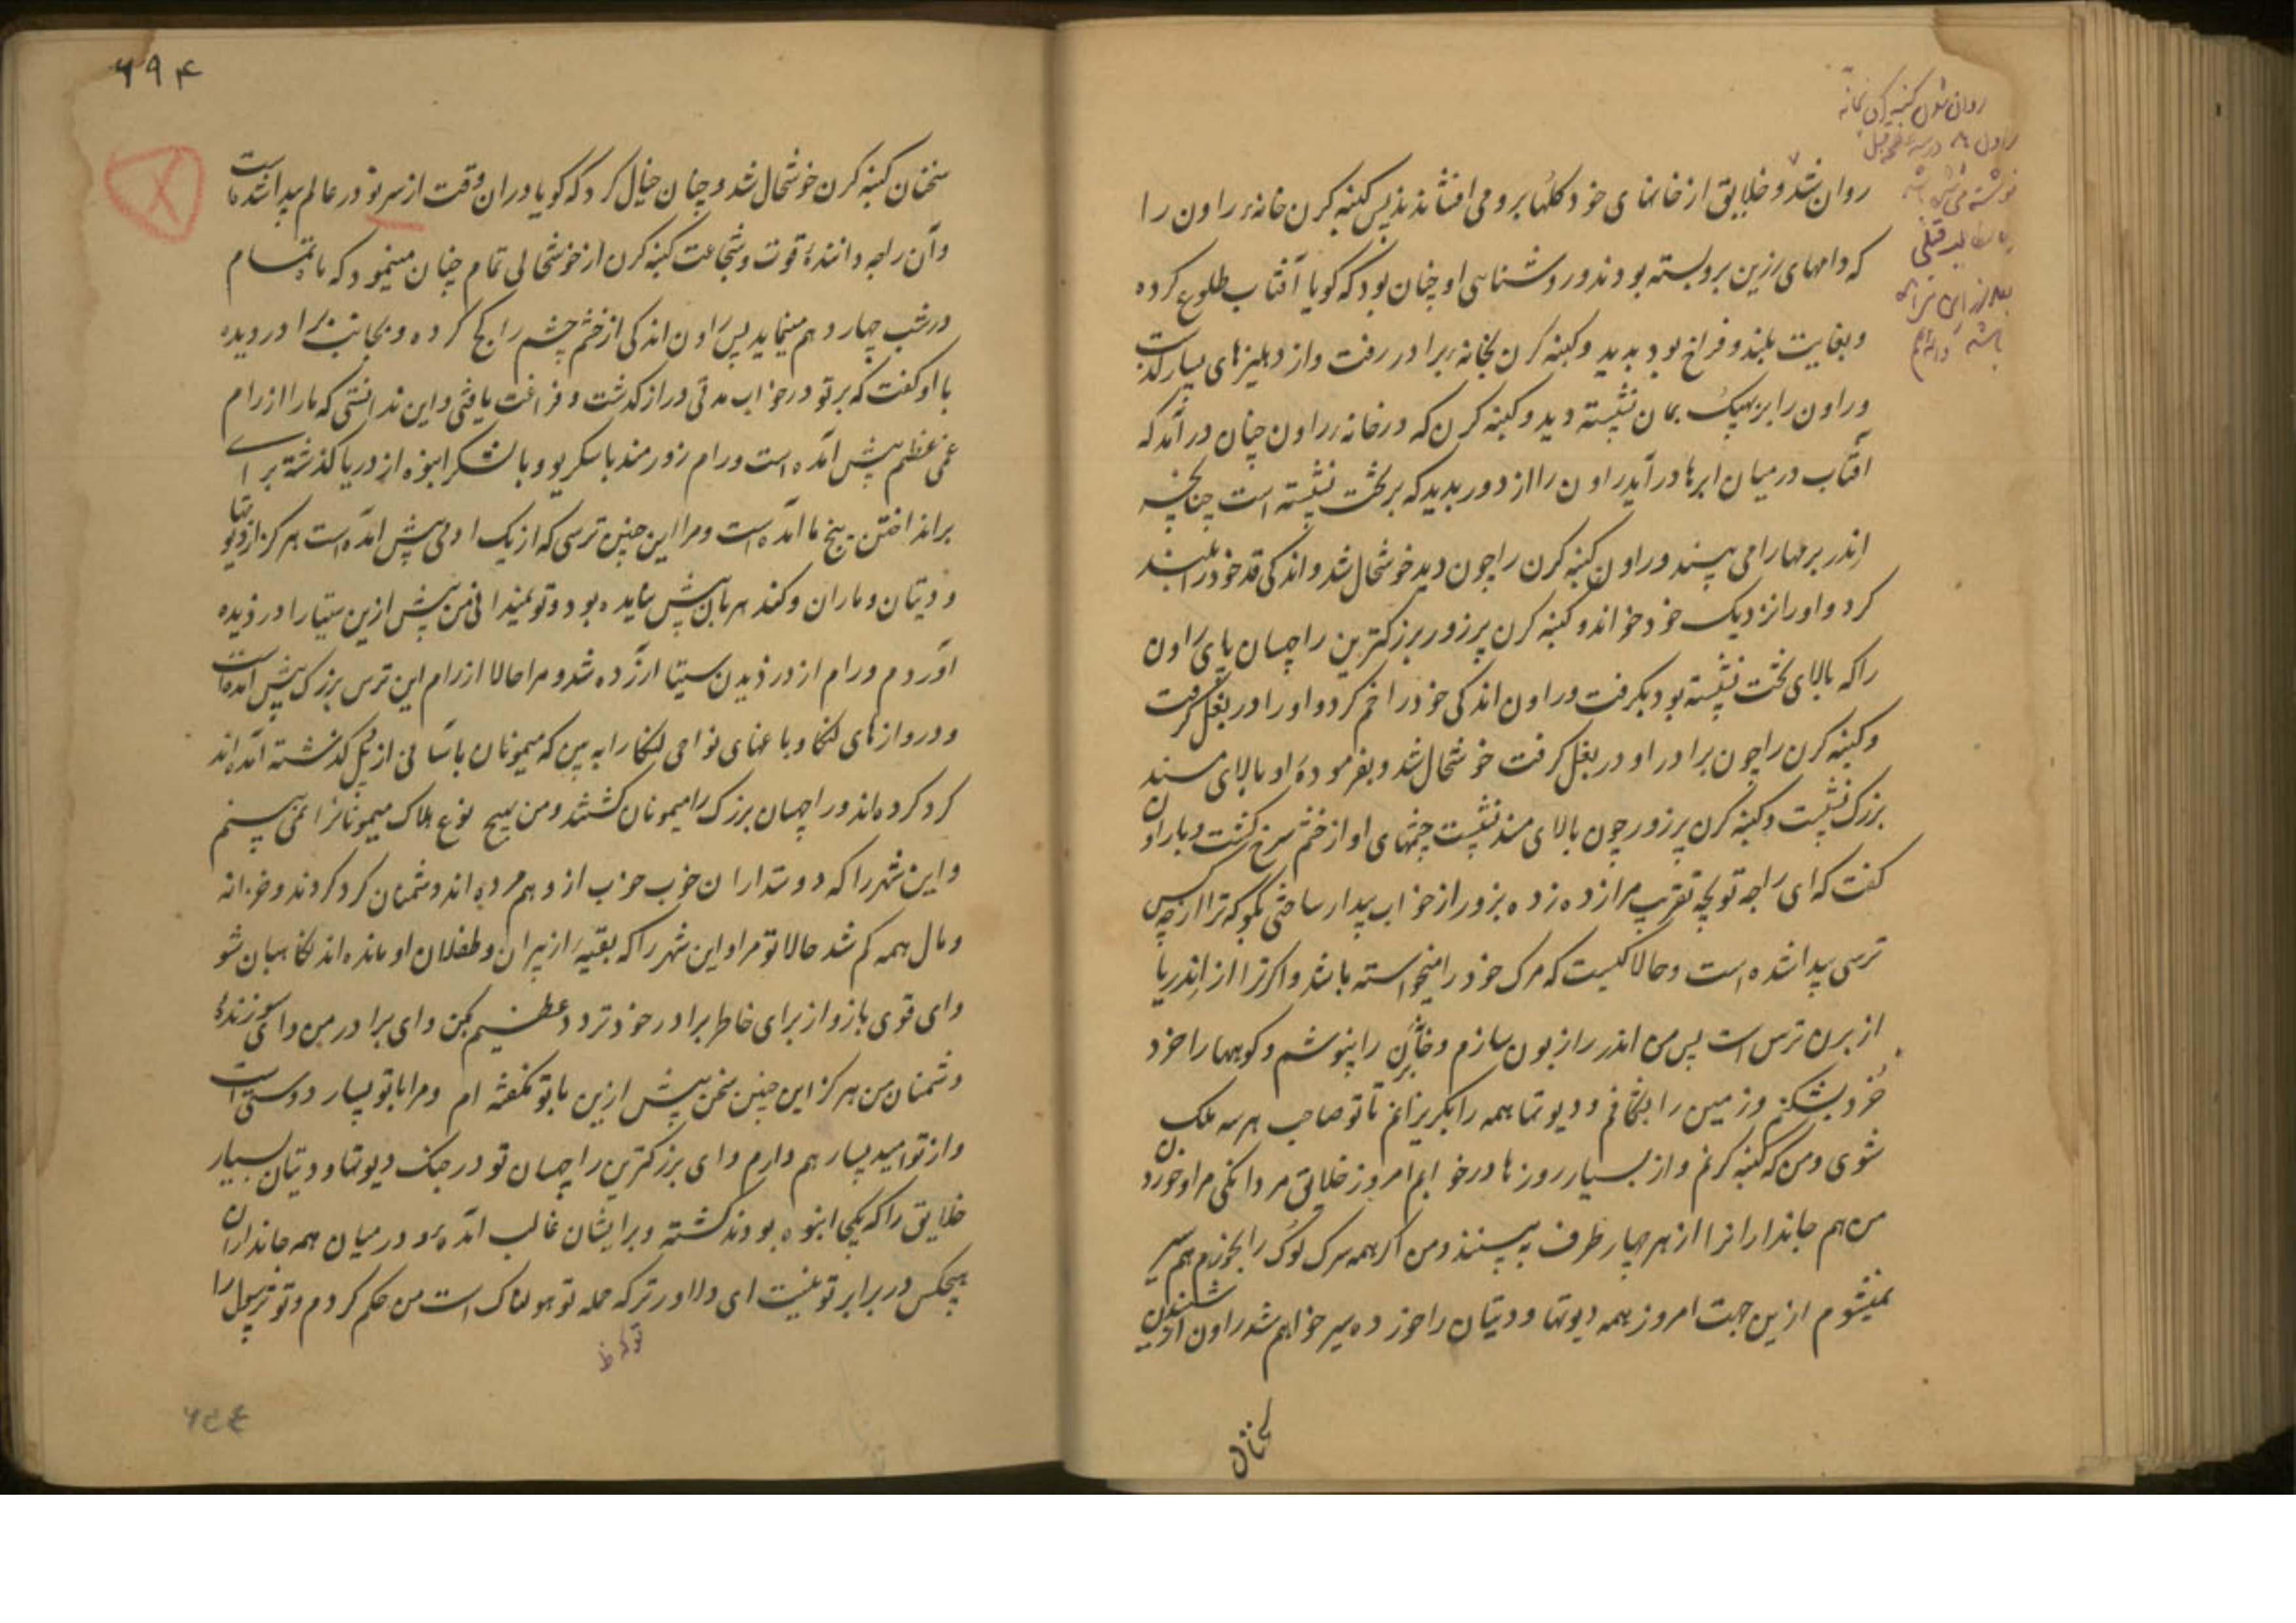 روان شد و خلایق از خانهای خود کلها برو می افشاندند پس کنبه کرن خانهٔ راون را
که دامهای زرین برو بسته بودند و روشناسی او چنان بود که کویا آفتاب طلوع کرده
و بغایت بلند و فراخ بود بدید و کنبه کرن بخانهٔ برادر رفت و از دهلیزهای بسیار کذشت
و راون را بر پهپک بمان نشسته دید و کنبه کرن که در خانهٔ راون چنان در آمد که
آفتاب در میان ابرها در آید راون را از دور بدید که بر تخت نشسته است چنانچه
اندر برمها را می بیند و راون کنبه کرن را چون دید خوشحال شد و اندکی قد خود را بلند
کرد و او را نزدیک خود خواند و کنبه کرن پر زور بزرکترین راچهسان پای راون
را که بالای تخت نشسته بود بکرفت و راون اندکی خود را خم کرد و او را در بغل کرفت
و کنبه کرن را چون برادر او در بغل کرفت خوشحال شد و بفرمودهٔ او بالای مسند
بزرک نشست و کنبه کرن پر زور چون بالای مسند نشست چشمهای او از خشم سرخ کشت و با راون
کفت که ای راجه تو بچه تقریب مرا زده زده بزور از خواب بیدار ساختی بکو که ترا از چه کس
ترسی پیدا شده است و حالا کیست که مرک خود را میخواسته باشد و اکر ترا از اندر یا
از برن ترس است پس من اندر را زبون سازم و را بنوشم و کوهها را خورد
خورد بشکنم و زمین را بشکافم و دیوتها همه را بکریزانم تا تو صاحب هر سه ملک
شوی و من که کنبه کرنم و از بسیار روزها در خوابم امروز خلایق مردانکی مرا و خوردن
من هم جاندارانرا از هر چهار طرف به بینند و من اکر همه سرک لوک را بخورم هم سیر
نمیشوم ازین جهت امروز همه دیوتها و دیتان را خورده سیر خواهم شد راون از شنیدن این
سخنان
۶۹۴
سخنان کنبه کرن خوشحال شد و چنان خیال کرد که کویا دران وقت از سر نو در عالم پیدا شده است
و آن راجه دانندهٔ قوت و شجاعت کنبه کرن از خوشحالی تمام چنان مینمود که ماه تمام
در شب چهاردهم مینماید پس راون اندکی از خشم چشم را کج کرده و بجانب برادر دیده
با او کفت که بر تو در خواب مدتی دراز کذشت و فراغت یافتی و این ندانستی که ما را از رام
غمی عظیم پیش آمده است و رام زورمند با سکریو و با لشکر انبوه از دریا کذشته برای
برانداختن بیخ ما آمده است و مرا این چنین ترسی که از یک آدمی پیش آمده است هرکز از دیوتها
و دیتان و ماران و کندهربان پیش نیامده بود و تو نمیدانی من پیش ازین سیتا را دزدیده
آوردم و رام از دزدیدن سیتا آزرده شد و مرا حالا از رام این ترس بزرک پیش آمده است
و دروازهای لنکا و باغهای نواحی لنکا را ببین که میمونان بآسانی از پل کذشته آمده اند
کرد کرده اند و راچهسان بزرک را میمونان کشتند و من هیچ نوع هلاک میمونانرا نمی بینم
و این شهر را که دوستداران خوب خوب از وهم مرده اند و دشمنان کرد کردند و خزانه
و مال همه کم شد حالا تو مرا و این شهر را که بقیهٔ از پیران و طفلان او مانده اند نکاهبان شو
و ای قوی بازو از برای خاطر برادر خود تردد عظیم بکن و ای برادر من و ای سوزندهٔ
دشمنان من هرکز این چنین سخن پیش ازین با تو نکفته ام و مرا با تو بسیار دوستی است
و از تو امید بسیار هم دارم و ای بزرکترین راچهسان تو در جنک دیوتها و دیتان بسیار
خلایق را که یکجا انبوه بودند کشته و بر ایشان غالب آمدهٔ و در میان همه جانداران
هیچکس در برابر تو نیست ای دلاور ترا که حمله تو هولناک است من حکم کردم و تو ترسول را